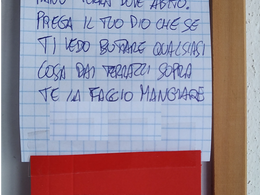 DOVE ABITO.
PREGA IL TUO DIO CHE SE
TI VEDO BUTTARE QUALSIASI
COSA DAI TERRAZZI SOPRA
TE LA FACCIO MANGIARE